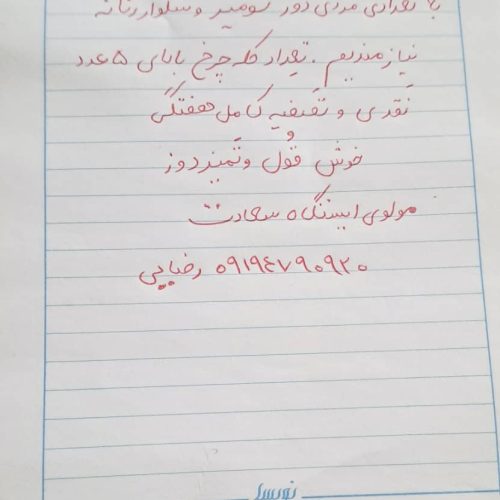 با تعدادی مزدی دوز شومیز و شلوار زنانه
نیازمندیم. تعداد کله چرخ بابای ۵ عدد
نقدی و تصفیه کامل هفتگی
خوش قول و تمیز دوز
مولوی ایستگاه سعادت
۰۹۱۹۴۷۹۰۹۲۰ رضایی